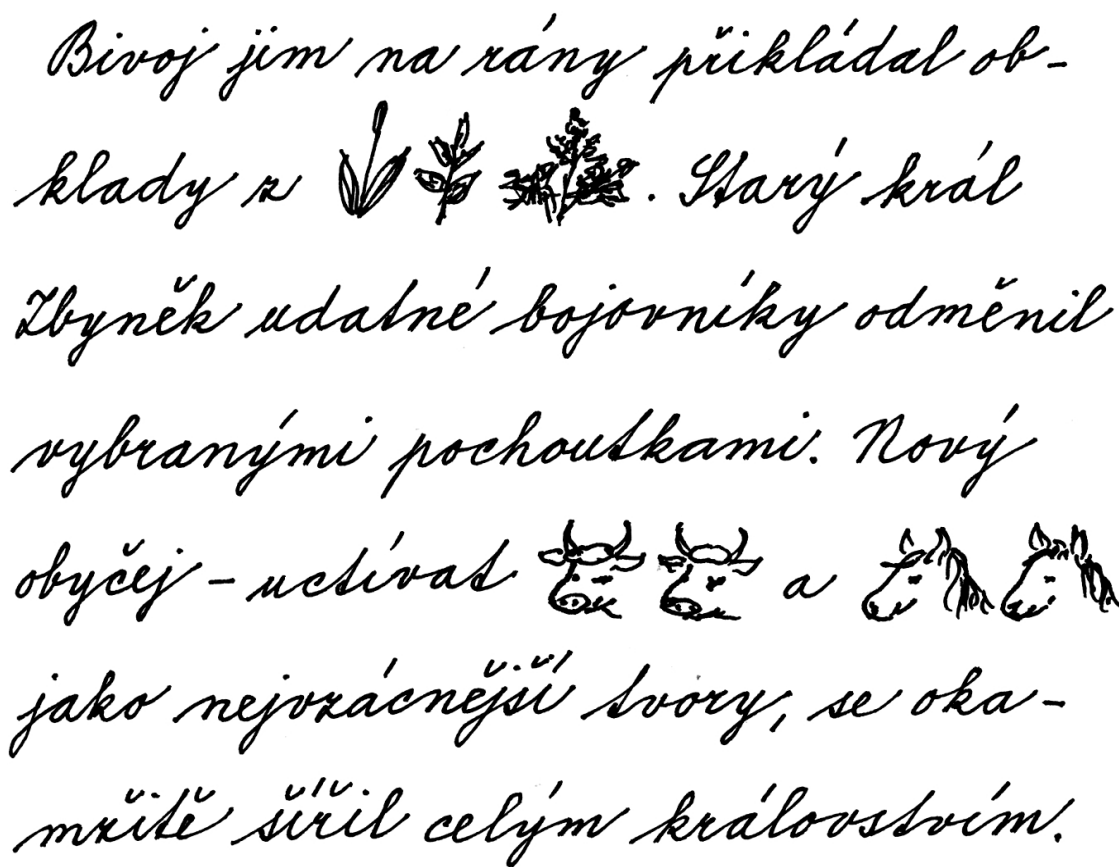 Bivoj jim na rány přikládal ob-
klady z . Starý král
Zbyněk udatné bojovníky odměnil
vybranými pochoutkami. Nový
obyčej – uctívat a
jako nejvzácnější tvory, se oka-
mžitě šířil celým královstvím.